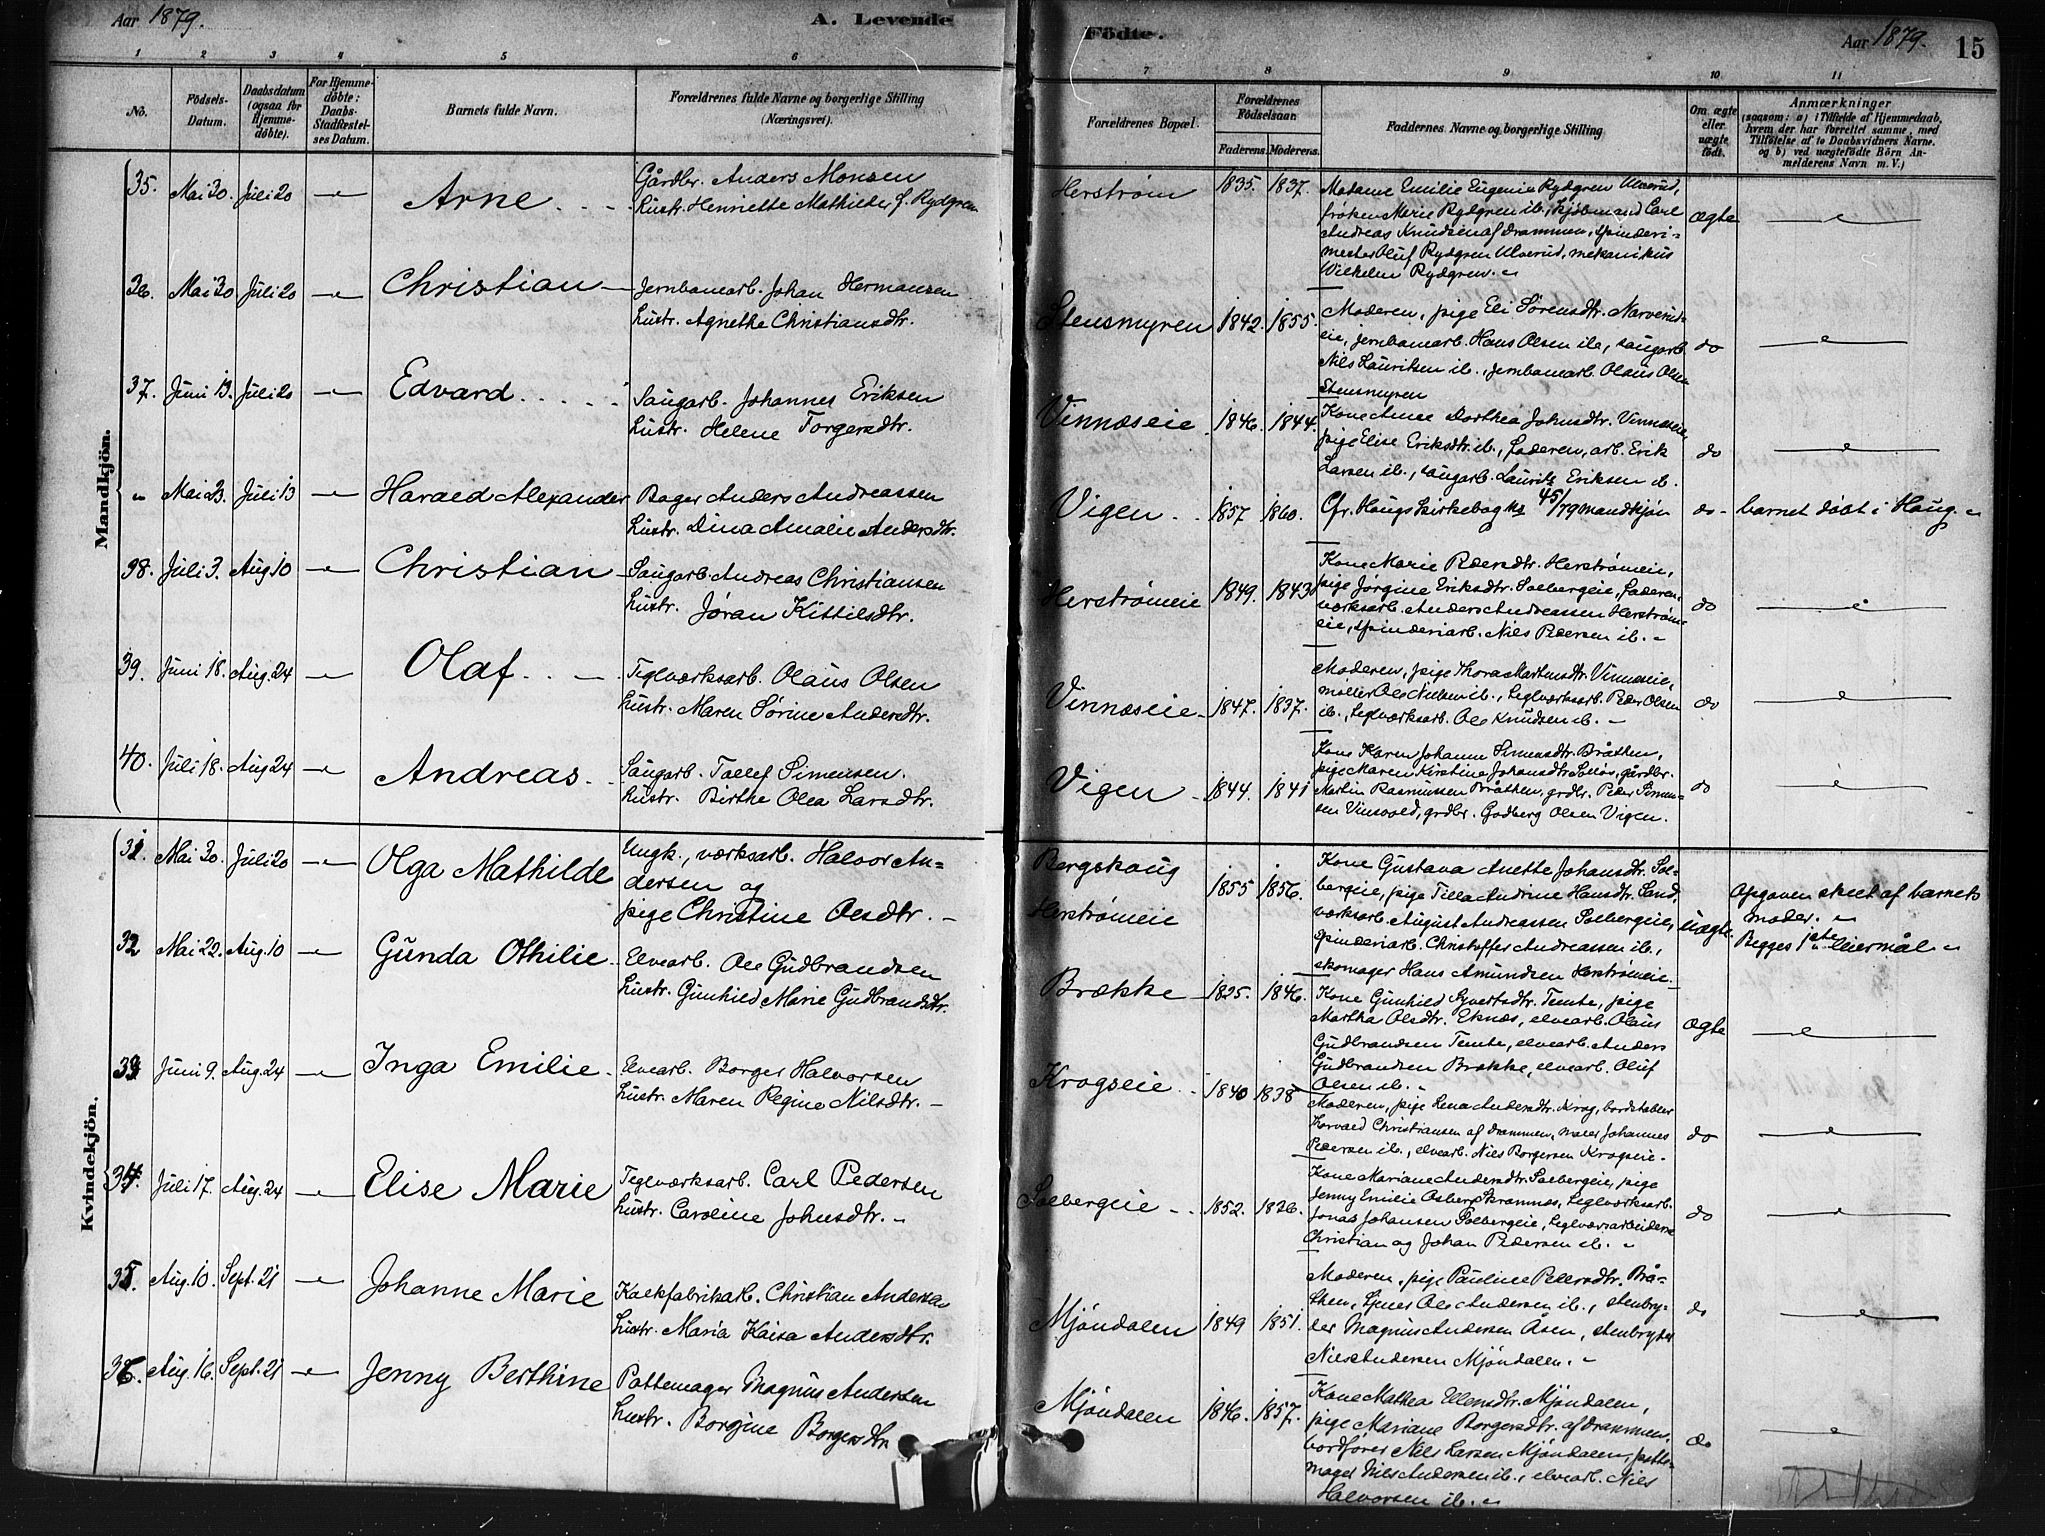 Aar 1879.
A. Levende
Födte.
Aar 1879.
15
1 2 3 4 5 6 7 8 9 10 11
No.
Födsels-
Datum.
Daabsdatum
(ogsaa for
Hjemme-
döbte).
For Hjemme-
döbte:
Daabs-
Stadfæstel-
ses Datum.
Barnets fulde Navn.
Forældrenes fulde Navne og borgerlige Stilling
(Næringsvei).
Forældrenes Bopæl.
Forældrenes
Födselsaar.
Faderens. Moderens.
Faddernes Navne og borgerlige Stilling
Om ægte
eller
uægte
født.
Anmærkninger
(saasom: a) i Tilfælde af Hjemmedaab,
hvem der har forrettet samme, med
Tilföielse af to Daabsvidners Navne.
og b) ved uægtefödte Börn An-
melderens Navn m. V.)
Mandkjön.
35. Mai 30. Juli 20 Arne
Gårdbr. Anders Monsen
hustr. Henriette Mathilde f. Rydgren
Herström 1835. 1837.
Madame Emilie Eugenie Rydgren Ulverud,
frøken Marie Rydgren ib., kjøbmand Carl
Andreas Knudsen af Drammen, spinderi-
mester Oluf Rydgren Ulverud, mekanikus
Wilhelm Rydgren.
ægte
36. Mai 30 Juli 20 Christian
Jernbanearb. Johan Hermansen
hustr. Agnethe Christiansdtr.
Stensmyren 1842. 1855.
Moderen, pige Eli Sørensdtr. Narverud-
eie, jernbanearb. Hans Olsen ib., saugarb.
Nils Lauritsen ib., jernbanearb. Olaus Olsen
Stensmyren
do
37. Juni 13. Juli 20 Edvard
Saugarb. Johannes Eriksen
hustr. Helene Torgersdtr.
Vinnæseie 1846. 1844.
Kone Anne Dorthea Johnsdtr. Vinnæseie,
pige Elise Eriksdtr. ib., Faderen, arb. Erik
Larsen ib., saugarb. Laurits Eriksen ib.
do
" Mai 23. Juli 13 Harald Alexander
Bager Anders Andreassen
hustr. Dina Amalie Andersdtr.
Vigen 1857 1860.
Cfr. Haugs kirkebog No 45/79 mandkjøn
do barnet døbt i Haug.
38. Juli 3. Aug. 10 Christian
Saugarb. Andreas Christiansen
hustr. Jøran Kittilsdtr.
Herströmeie 1849. 1843
Kone Marie Pedersdtr. Herströmeie,
pige Jørgine Eriksdtr. Solbergeie, Faderen,
værksarb. Anders Andreassen Herström-
eie, spinderiarb. Nils Pedersen ib.
do
39. Juni 18. Aug. 24 Olaf
Teglværksarb. Olaus Olsen
hustr. Maren Sørine Andersdtr.
Vinnæseie 1847. 1837.
Moderen, pige Thora Martensdtr. Vinnæseie,
møller Ole Nielsen ib., teglværksarb. Peder Olsen
ib., teglværksarb. Ole Knudsen ib.
do
40. Juli 18. Aug. 24 Andreas
Saugarb. Tollef Simensen.
hustr. Birthe Olea Larsdtr.
Vigen 1844. 1841
Kone Karen Johanne Simensdtr. Bråthen,
pige Maren Kirstine Johansdtr. gårdbr.
Martin Rasmussen Bråthen, grdbr. Peder Simen-
sen Vinsvold, grdbr. Gudberg Olsen Vigen.
do
Kvindekjön.
31. Mai 30. Juli 20 Olga Mathilde
Ungk., værksarb. Halvor An-
dersen og
pige Christine Olsdtr.
Bergskaug
Herströmeie
1855 1856.
Kone Gustava Anette Johansdtr. Sol-
bergeie, pige Tilla Andrine Hansdtr. Sand,
værksarb. August Andreassen Solbergeie,
spinderiarb. Christoffer Andreassen ib.,
skomager Hans Amundsen Herströmeie.
uægte
Opgaven skeet af barnets
moder.
Begges 1ste leiermål
32 Mai 22. Aug. 10 Gunda Othilie
Elvearb. Ole Gudbrandsen
hustr. Gunhild Marie Gudbrandsdtr.
Brække 1825. 1846.
Kone Gunhild Syvertsdtr. Temte, pige
Martha Olsdtr. Eknæs, elvearb. Olaus
Gudbrandsen Temte, elvearb. Anders
Gudbrandsen Brække, elvearb. Oluf
Olsen ib.
ægte
33 Juni 9. Aug. 24 Inga Emilie
Elvearb. Borger Halvorsen
hustr. Maren Regine Nilsdtr.
Krogseie 1840 1838
Moderen, pige Lena Andersdtr. Krog, bordstabler
Harvald Christiansen af Drammen, maler Johannes
Pedersen ib., elvearb. Nils Borgersen Krogseie.
do
34. Juli 17. Aug. 24 Elise Marie
Teglværksarb. Carl Pedersen
hustr. Caroline Johnsdtr.
Solbergeie 1852. 1826.
Kone Mariane Andersdtr. Solbergeie, pige
Jenny Emilie Osberg Stramnæs, teglværksarb.
Jonas Johansen Solbergeie, teglværksarbeiderne
Christian og Johan Pedersen ib.
do
35. Aug. 10. Sept. 21 Johanne Marie
Kalkfabrikarb. Christian Andersen
hustr. Maria Kaisa Andersdtr.
Mjöndalen 1849 1851.
Moderen, pige Pauline Pedersdtr. Brå-
then, tjener Ole Andersen ib., stenbry-
der Magnus Andersen Åsen, stenbryder
Nils Andersen Mjöndalen.
do
36. Aug. 16. Sept. 21 Jenny Berthine
Pottemager Magnus Andersen
hustr. Borgine Borgersdtr.
Mjöndalen 1846. 1857.
Kone Mathea Ellensdtr. Mjöndalen,
pige Mariane Borgersdtr. af Drammen,
bordfører Nils Larsen Mjöndalen, potte-
mager Nils Andersen ib., elvearb. Nils
Halvorsen ib.
do